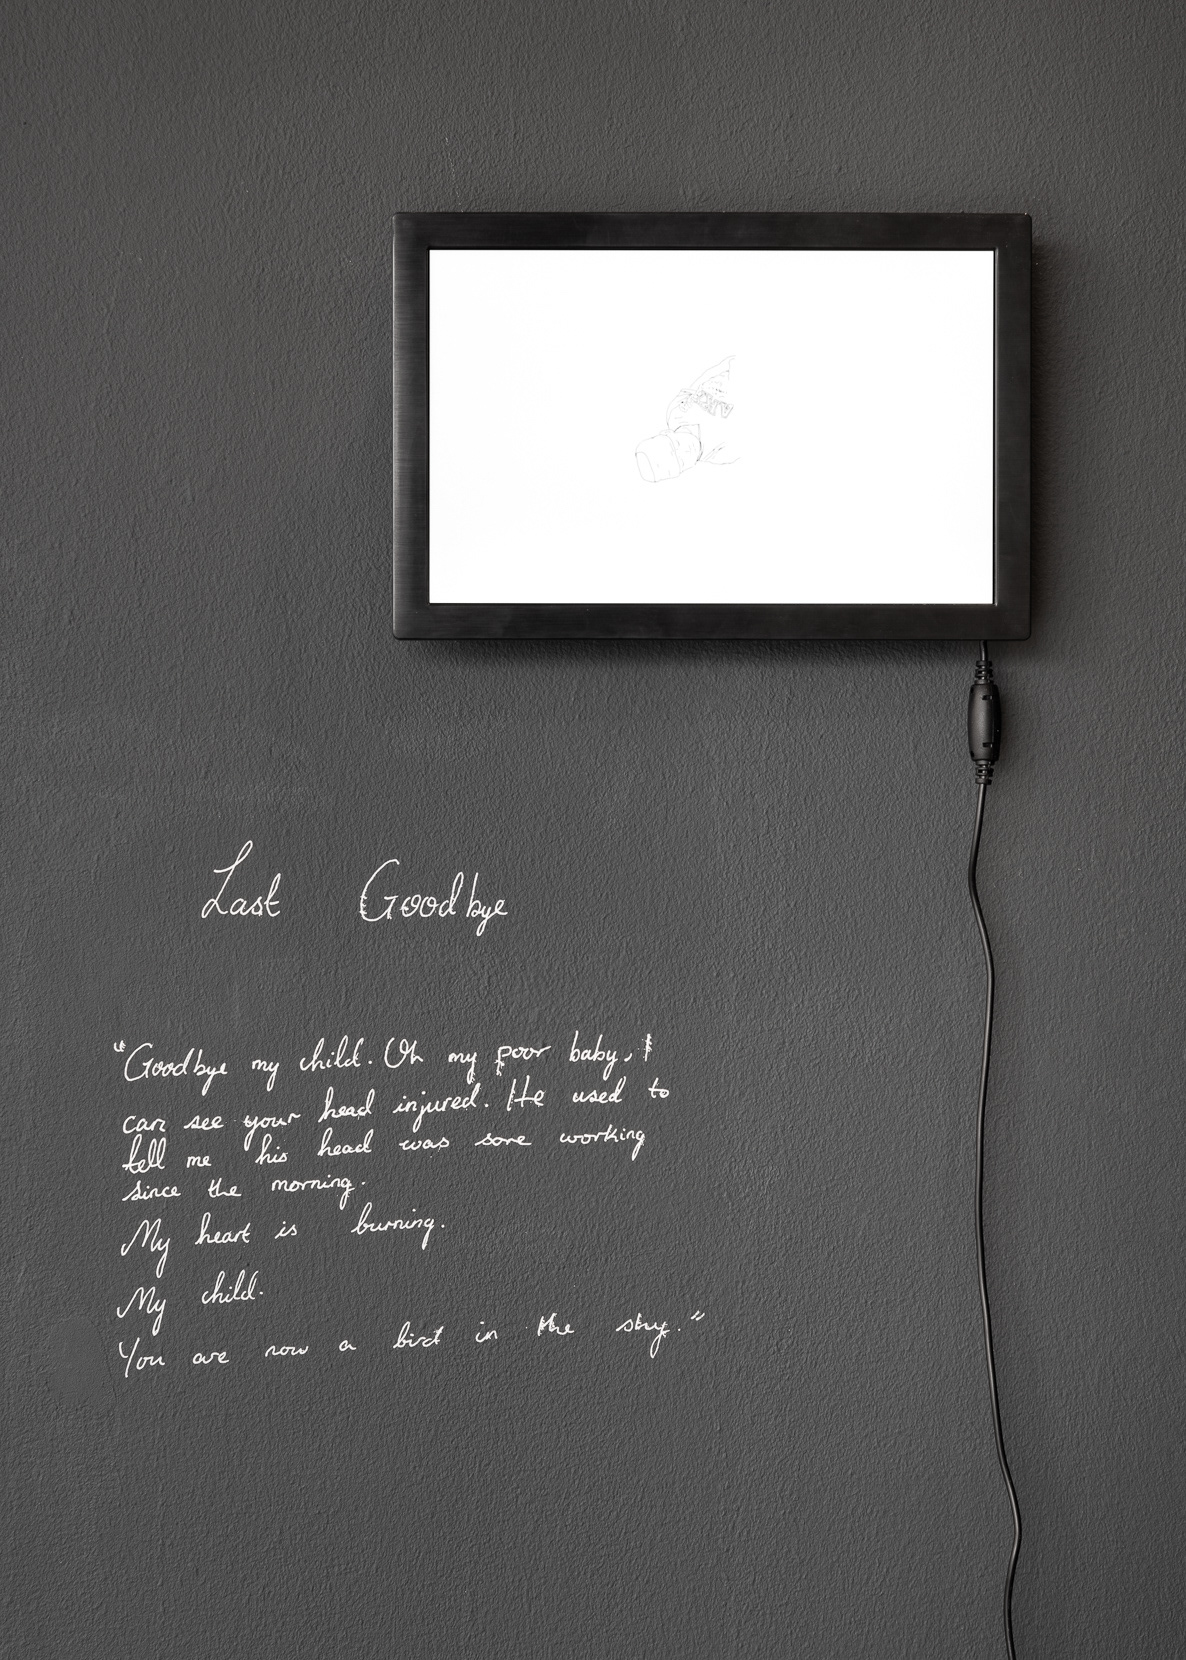 Last Goodbye
“Goodbye my child. Oh my poor baby, I
can see your head injured. He used to
tell me his head was sore working
since the morning.
My heart is burning.
My child.
You are now a bird in the sky.”